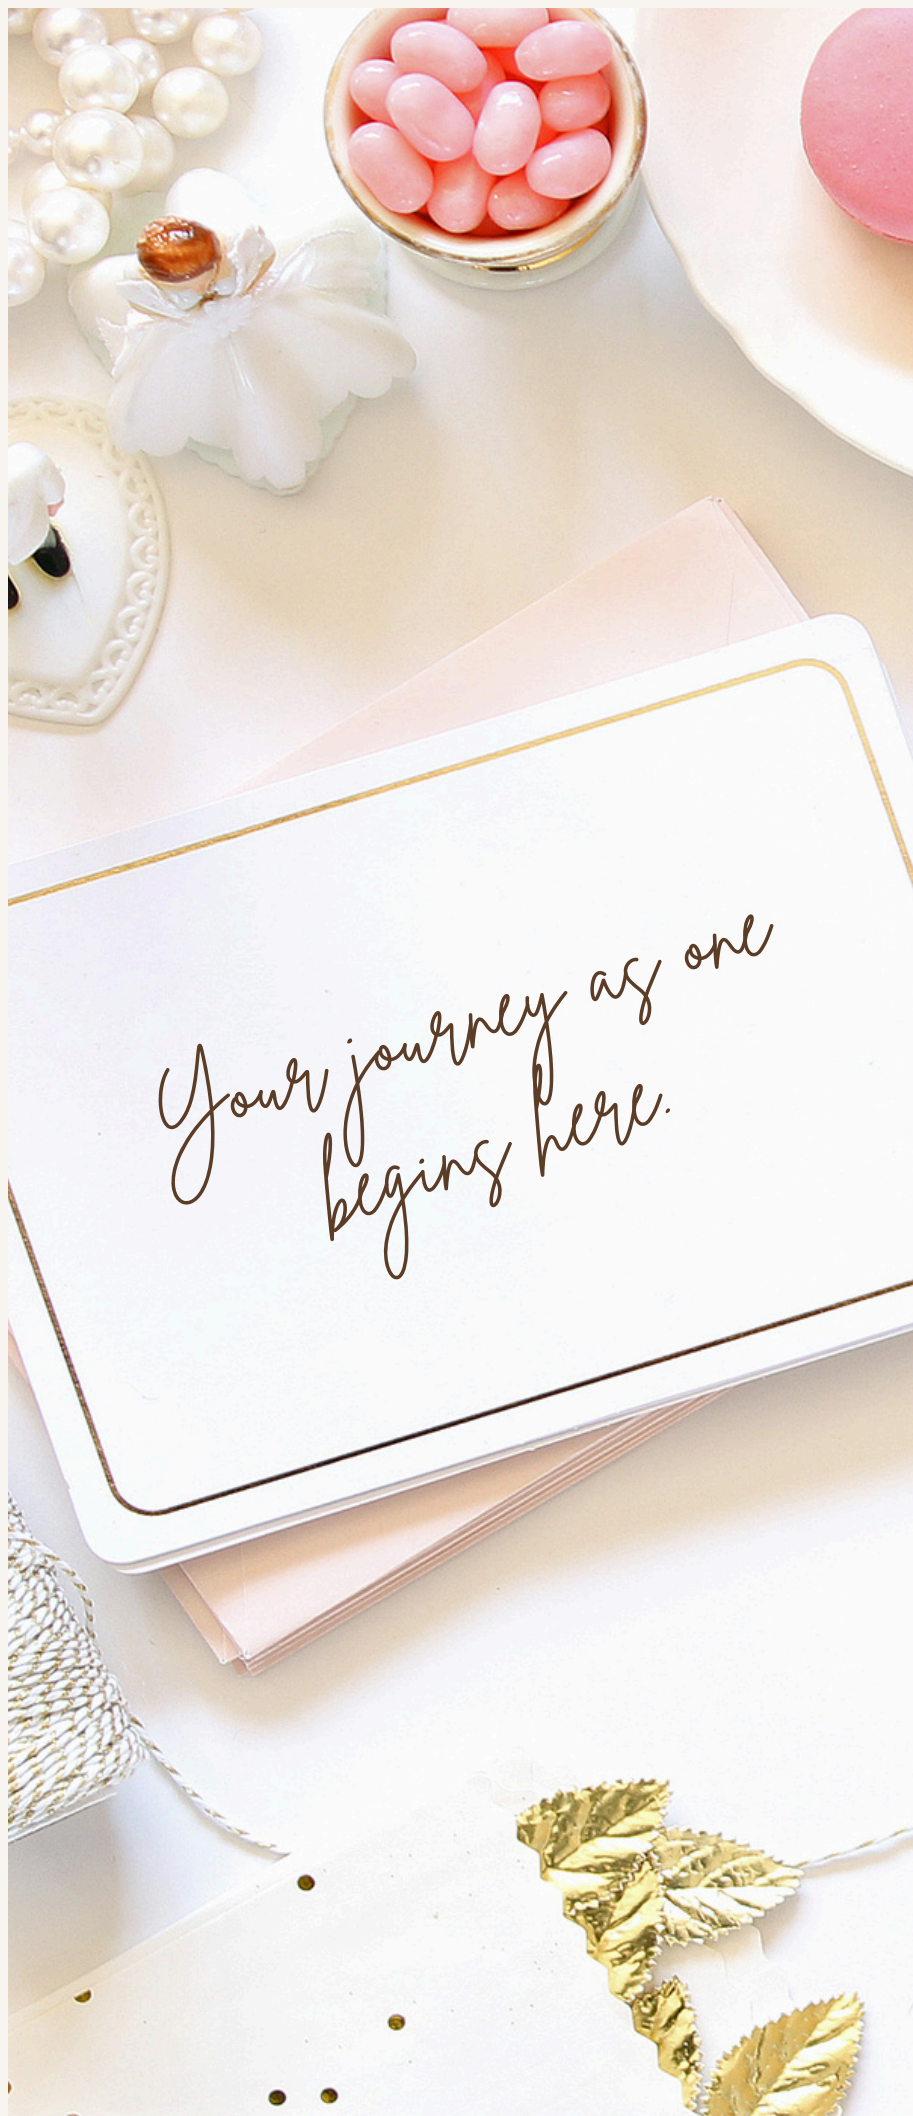 Your journey as one
begins here.